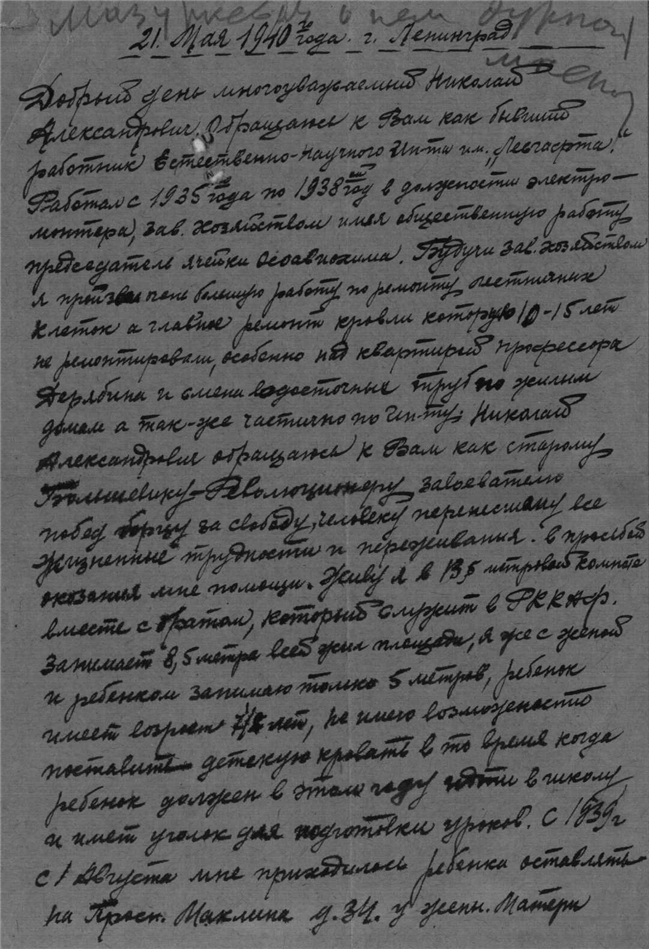 Мазуркевич о нем дурного
мнения
21. Мая 1940го года. г. Ленинград
Добрый день многоуважаемый Николай
Александрович, Обращаюсь к Вам как бывший
работник Естественно-Научного Ин-та им. „Лесгафта".
Работал с 1935 года по 1938 год в должности электро-
монтера, зав. хозяйством имея общественную работу
председатель ячейки Осоавиохима. Будучи зав. хозяйством
я произвел большую работу по ремонту лестничных
клеток а главное ремонт кровли которую 10-15 лет
не ремонтировали, особенно над квартирой профессора
Дерябина и смена водосточных труб по жилым
домам а так-же частично по Ин-ту; Николай
Александрович обращаюсь к Вам как старому
Большевику-Революционеру завоевателю
побед борцу за свободу, человеку перенесшему все
жизненные трудности и переживания. в просьбой
оказания мне помощи. Живу я в 13,5 метровой комнате
вместе с братом, который служит в РККАФ.
Занимает 8,5 метра всей жил площади, я же с женой
и ребенком занимаю только 5 метров, ребенок
имеет возраст лет, не имею возможности
поставить детскую кровать в то время когда
ребенок должен в этом году идти в школу
и имет уголок для подготовки уроков. С 1939 г
с 1 Августа мне приходилось ребенка оставлять
на Просп. Маклина д. 34. у жены. Матери